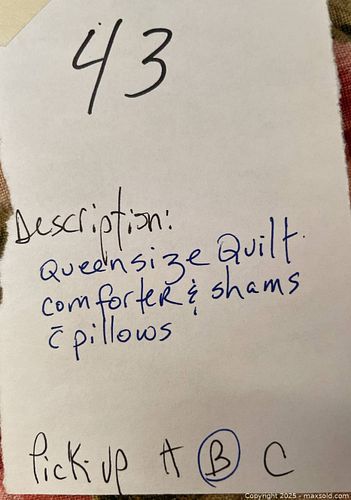 43
Description:
Queensize Quilt
comforter & shams
c̄ pillows
Pick up A B C
Copyright 2025 - maxsold.com